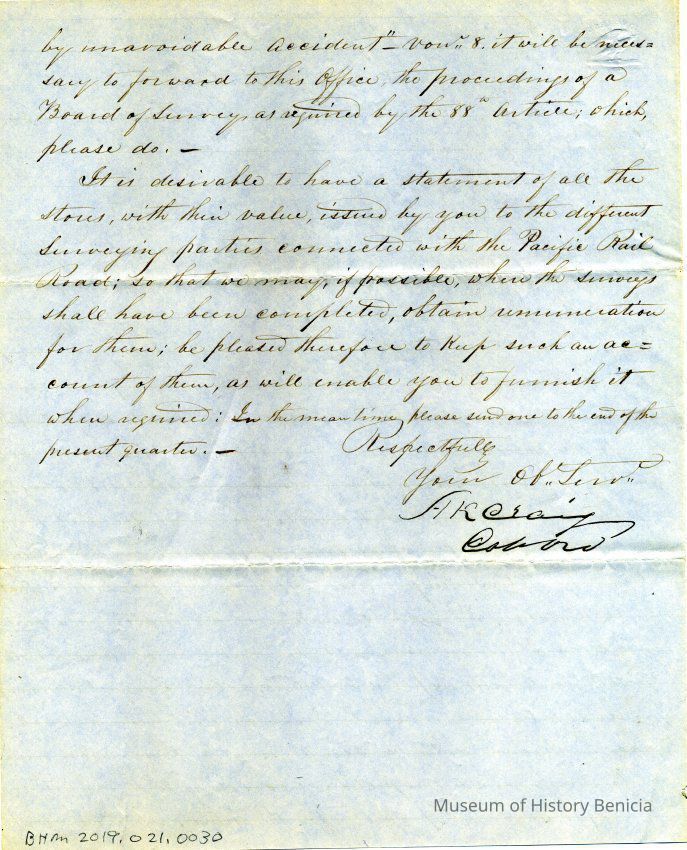 by unavoidable accident" – vour. 8. it will be neces=
sary to forward to this Office, the proceedings of a
Board of Survey, as required by the 88th Article; which,
please do. –
It is desirable to have a statement of all the
stores, with their value, issued by you to the different
surveying parties connected with the Pacific Rail
Road; so that we may, if possible, when the surveys
shall have been completed, obtain remuneration
for them; be pleased therefore to keep such an ac=
count of them, as will enable you to furnish it
when required: In the mean time please send one to the end of the
present quarter. –
Respectfully
Your Ob. Servt.
H K Craig
Col Ord
Museum of History Benicia
BHM 2019.021.0030